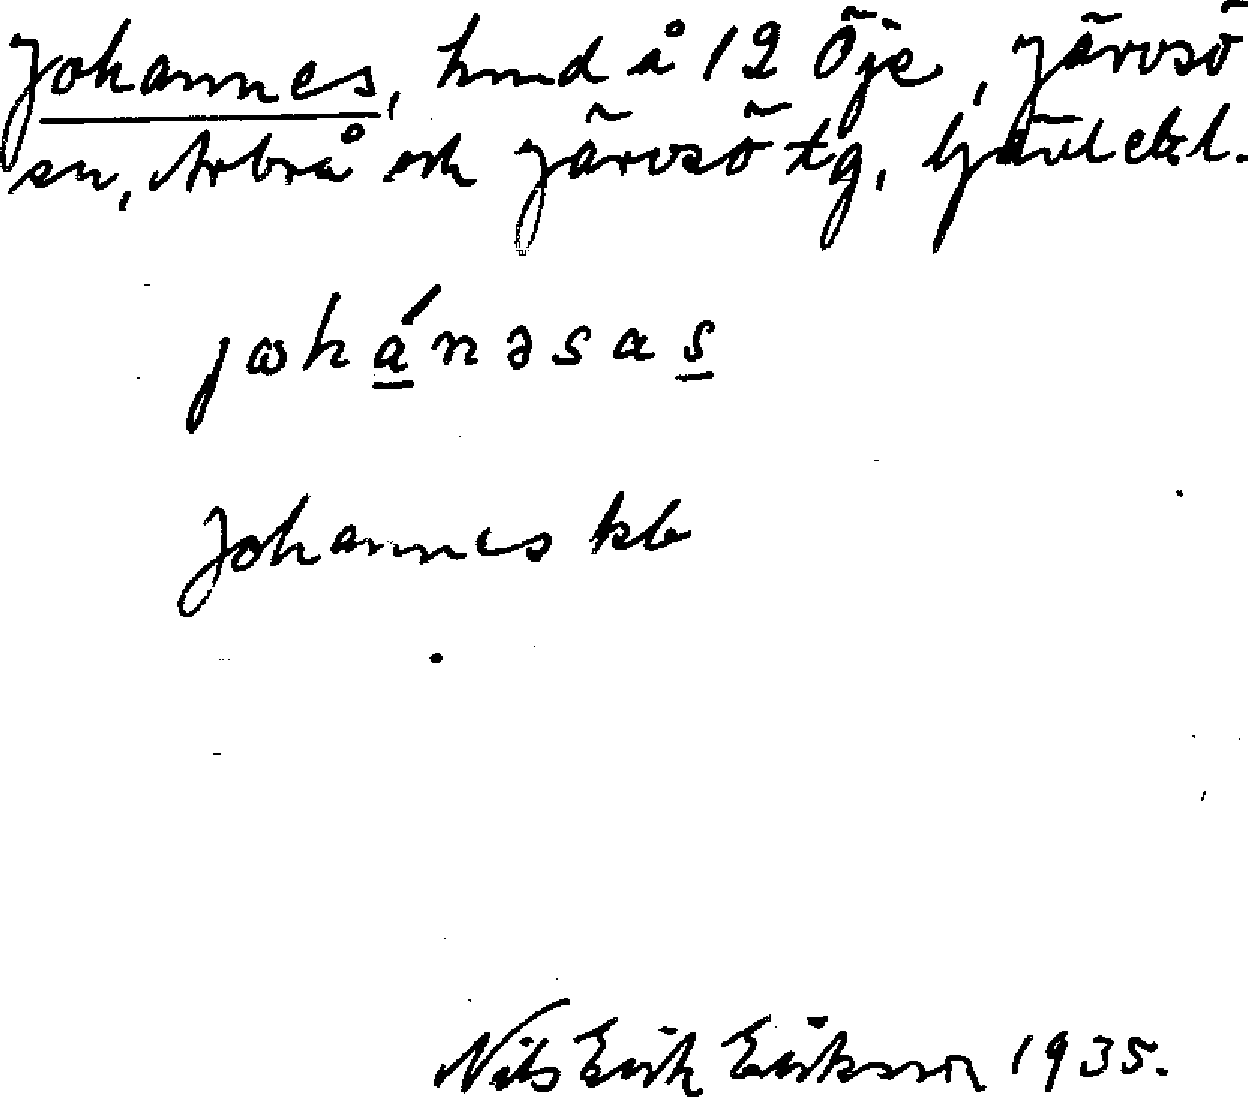 Johannes, hmd å 12 Öje, Järvsö
sn, Arbrå och Järvsö tg, Gävleb. l.
johánəsas
Johannes kb
Nils Erik Eriksson 1935.